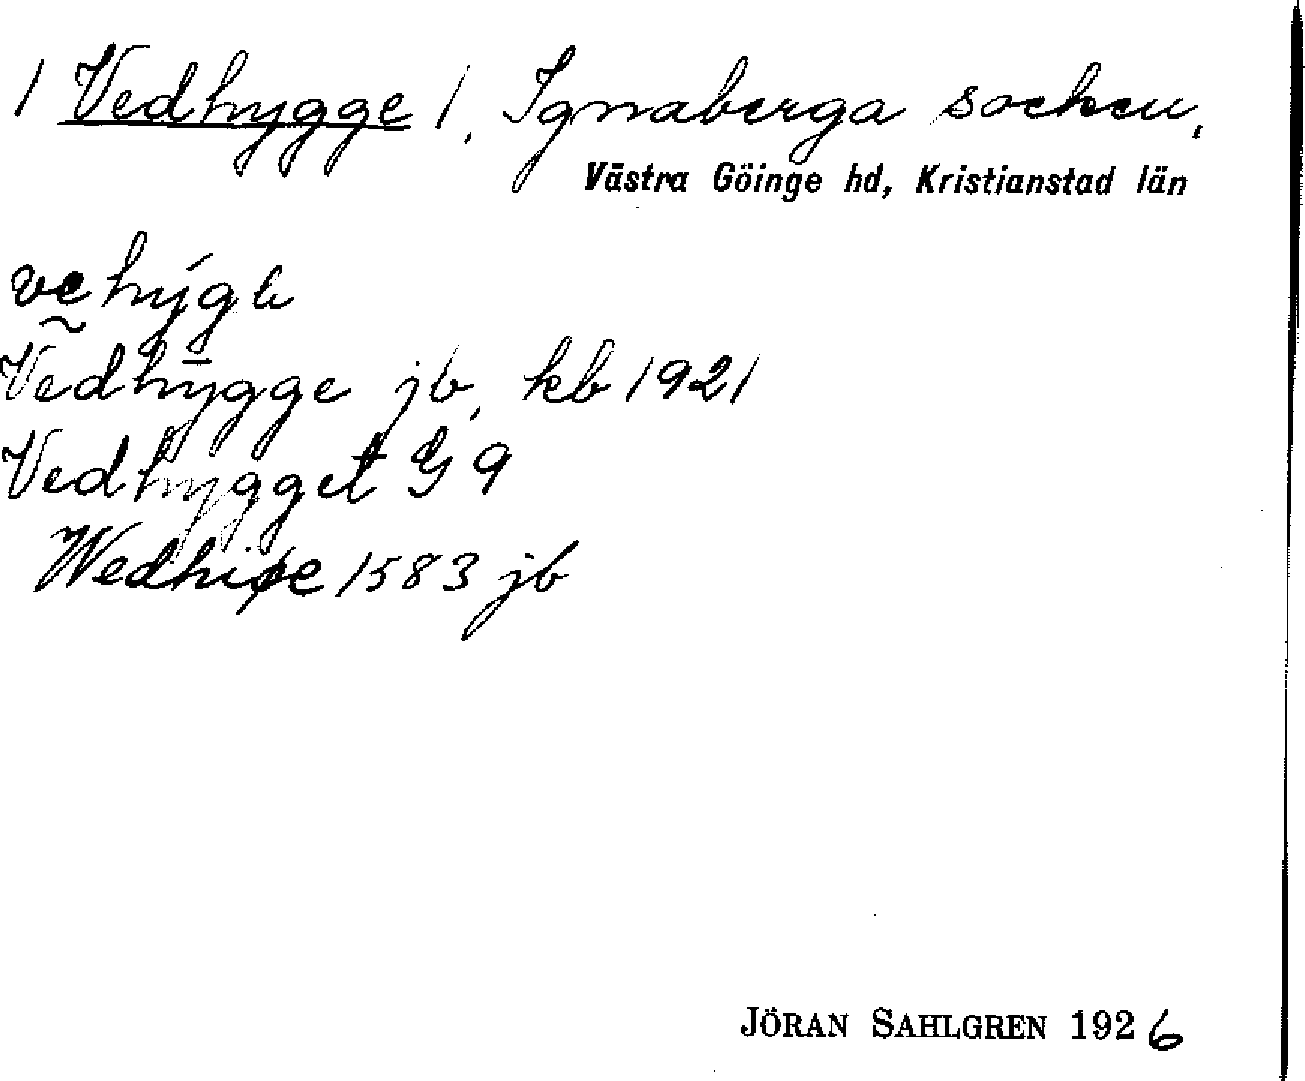 / Vedhygge /, Ignaberga socken,
Västra Göinge hd, Kristianstad län
Vedhygge jb, kb 1921
Vedhygget G 9
Wedhiøe 1583 jb
JÖRAN SAHLGREN 1926